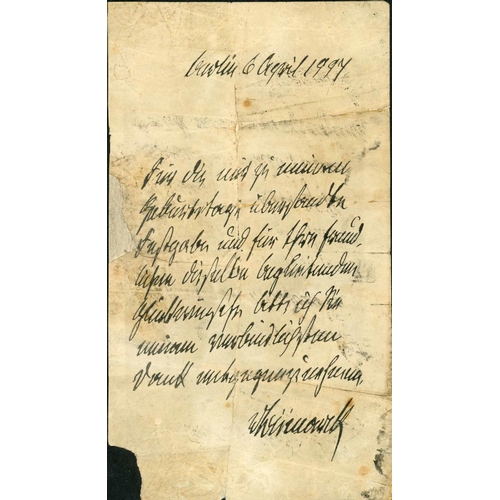 Berlin 6 April 1887
Für die mir zu meinem
Geburtstage übersandte
Festgabe und für Ihre freund-
lichen dieselbe begleitenden
Glückwünsche bitte ich Sie
meinen verbindlichsten
Dank entgegenzunehmen.
vBismarck